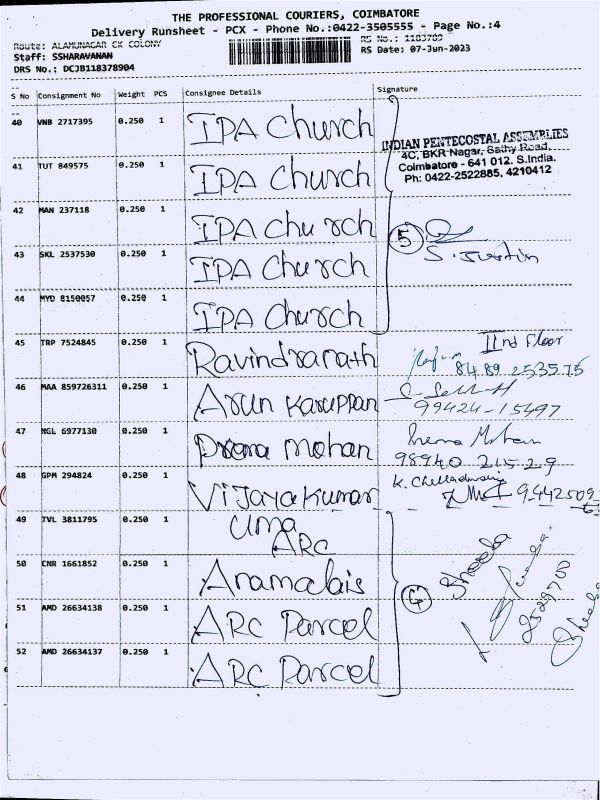 THE PROFESSIONAL COURIERS, COIMBATORE
Delivery Runsheet - PCX - Phone No.:0422-3505555 - Page No.:4
Route: ALAMUNAGAR CK COLONY RS No.: 1183789
Staff: SSHARAVANAN RS Date: 07-Jun-2023
DRS No.: DCJB118378904
S No Consignment No Weight PCS Consignee Details Signature
40 VNB 2717395 0.250 1 IPA Church
INDIAN PENTECOSTAL ASSEMBLIES
4C, BKR Nagar, Sathy Road,
Coimbatore - 641 012. S.India.
Ph: 0422-2522885, 4210412
41 TUT 849575 0.250 1 IPA Church
42 MAN 237118 0.250 1 IPA Church
5
S. Justin
43 SKL 2537530 0.250 1 IPA Church
44 MYD 8150057 0.250 1 IPA Church
45 TRP 7524845 0.250 1 Ravindranath IInd Floor
84 89 253575
46 MAA 859726311 0.250 1 Arun Karuppan
99424-15497
47 MGL 6977130 0.250 1 Prema Mohan Prema Mohan
98940 21529
48 GPM 294824 0.250 1 Vijayakumar K. Chelladurai
9442509
49 TVL 3811795 0.250 1 Uma
ARC
50 CNR 1661852 0.250 1 Anamalais
4 Sheeba
51 AMD 26634138 0.250 1 ARC Parcel
52 AMD 26634137 0.250 1 ARC Parcel
Sheeba